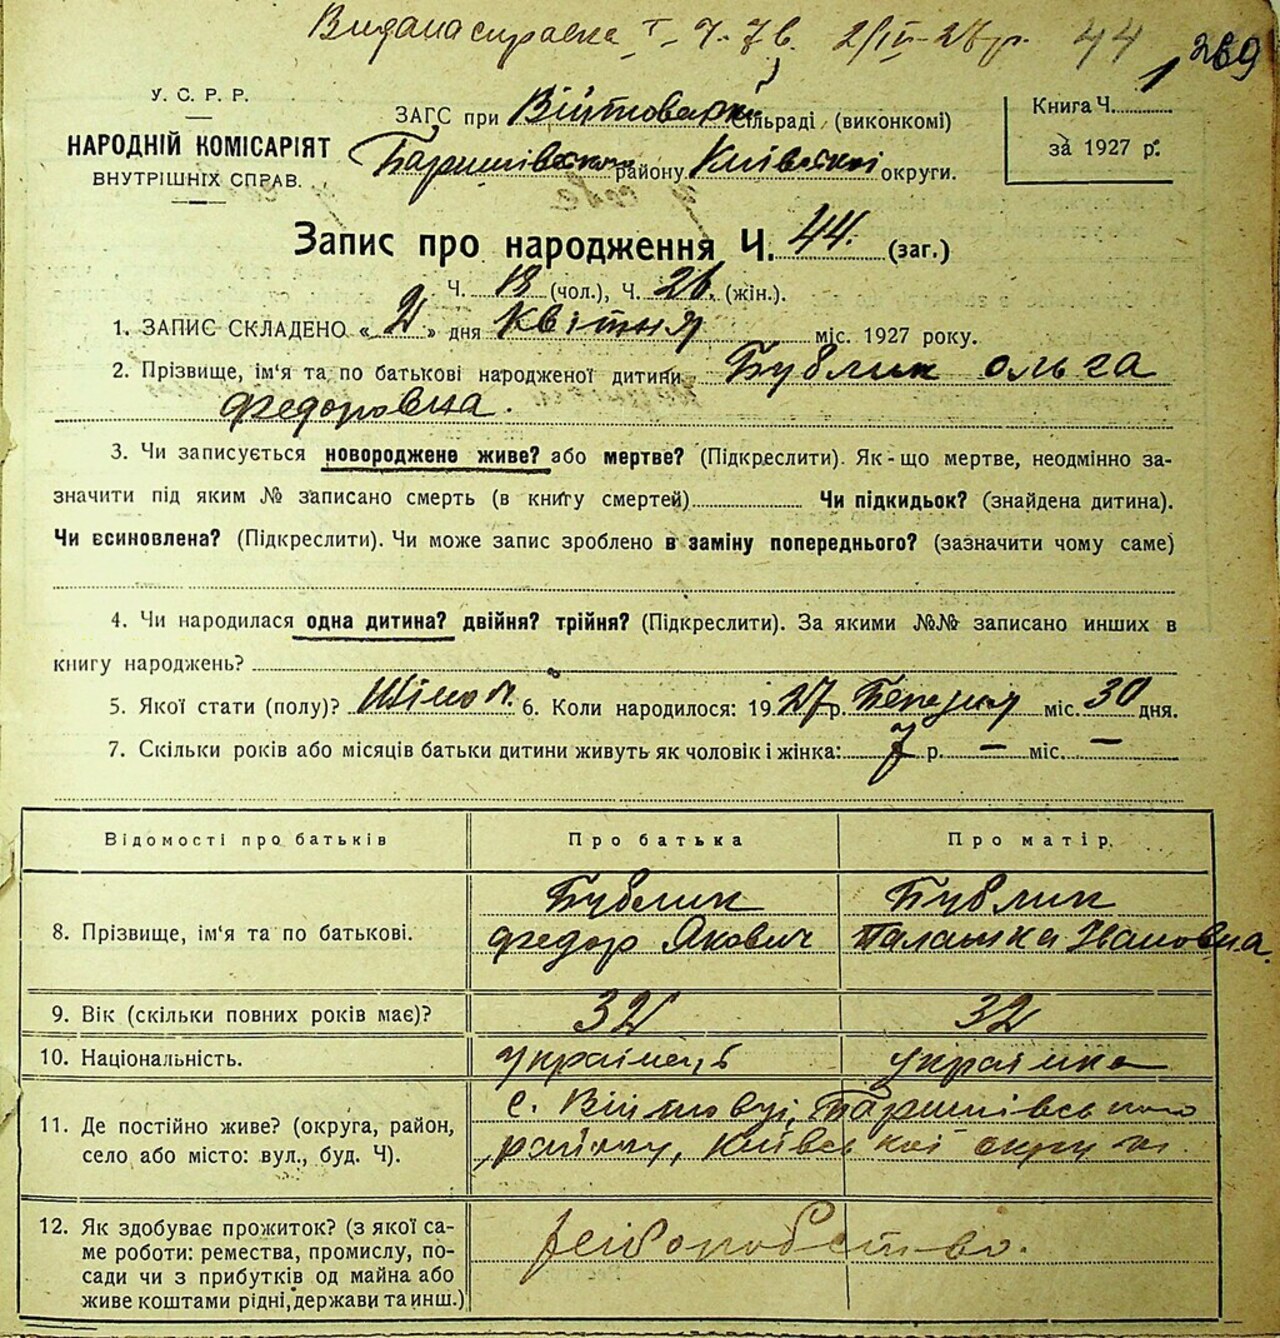 Видана справка 44 269
У. С. Р. Р.
НАРОДНІЙ КОМІСАРІЯТ
ВНУТРІШНІХ СПРАВ.
ЗАГС при Війтовській Сільраді (виконкомі)
Баришівському району Київської округи.
Книга Ч.
за 1927 р.
Запис про народження Ч. 44. (заг.)
Ч. 18 (чол.), Ч. 26. (жін.).
1. ЗАПИС СКЛАДЕНО «2» дня Квітня міс. 1927 року.
2. Прізвище, ім'я та по батькові народженої дитини Бублик Ольга
Федоровна.
3. Чи записується новороджене живе? або мертве? (Підкреслити). Як-що мертве, неодмінно за-
значити під яким № записано смерть (в книгу смертей) Чи підкидьок? (знайдена дитина).
Чи всиновлена? (Підкреслити). Чи може запис зроблено в заміну попереднього? (зазначити чому саме)
4. Чи народилася одна дитина? двійня? трійня? (Підкреслити). За якими №№ записано инших в
книгу народжень?
5. Якої стати (полу)? 6. Коли народилося: 1927 р. Березня міс. 30 дня.
7. Скільки років або місяців батьки дитини живуть як чоловік і жінка: 7 р. — міс. —
Відомості про батьків Про батька Про матір.
8. Прізвище, ім'я та по батькові. Бублик Федор Якович Бублик Палажка Івановна.
9. Вік (скільки повних років має)? 32 32
10. Національність. українець українка
11. Де постійно живе? (округа, район, с. Війтовці, Баришівського
село або місто: вул., буд. Ч). району, Київської округи.
12. Як здобуває прожиток? (з якої са-
ме роботи: ремества, промислу, по- хліборобство.
сади чи з прибутків од майна або
живе коштами рідні, держави та инш.)